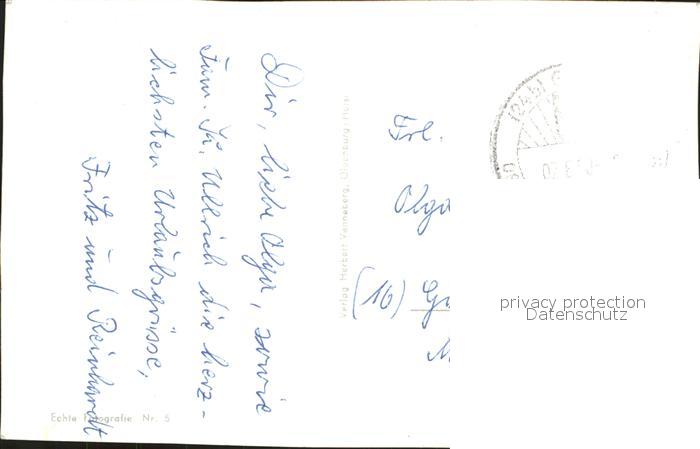 Dir, liebe Olga, sowie
Fam. Ullrich die herz-
lichsten Urlaubsgrüsse,
Fritz und Reinhardt
Echte Fotografie Nr. 5
Verlag Herbert
Frl.
Olga
(16)
(24b)
privacy protection
Datenschutz